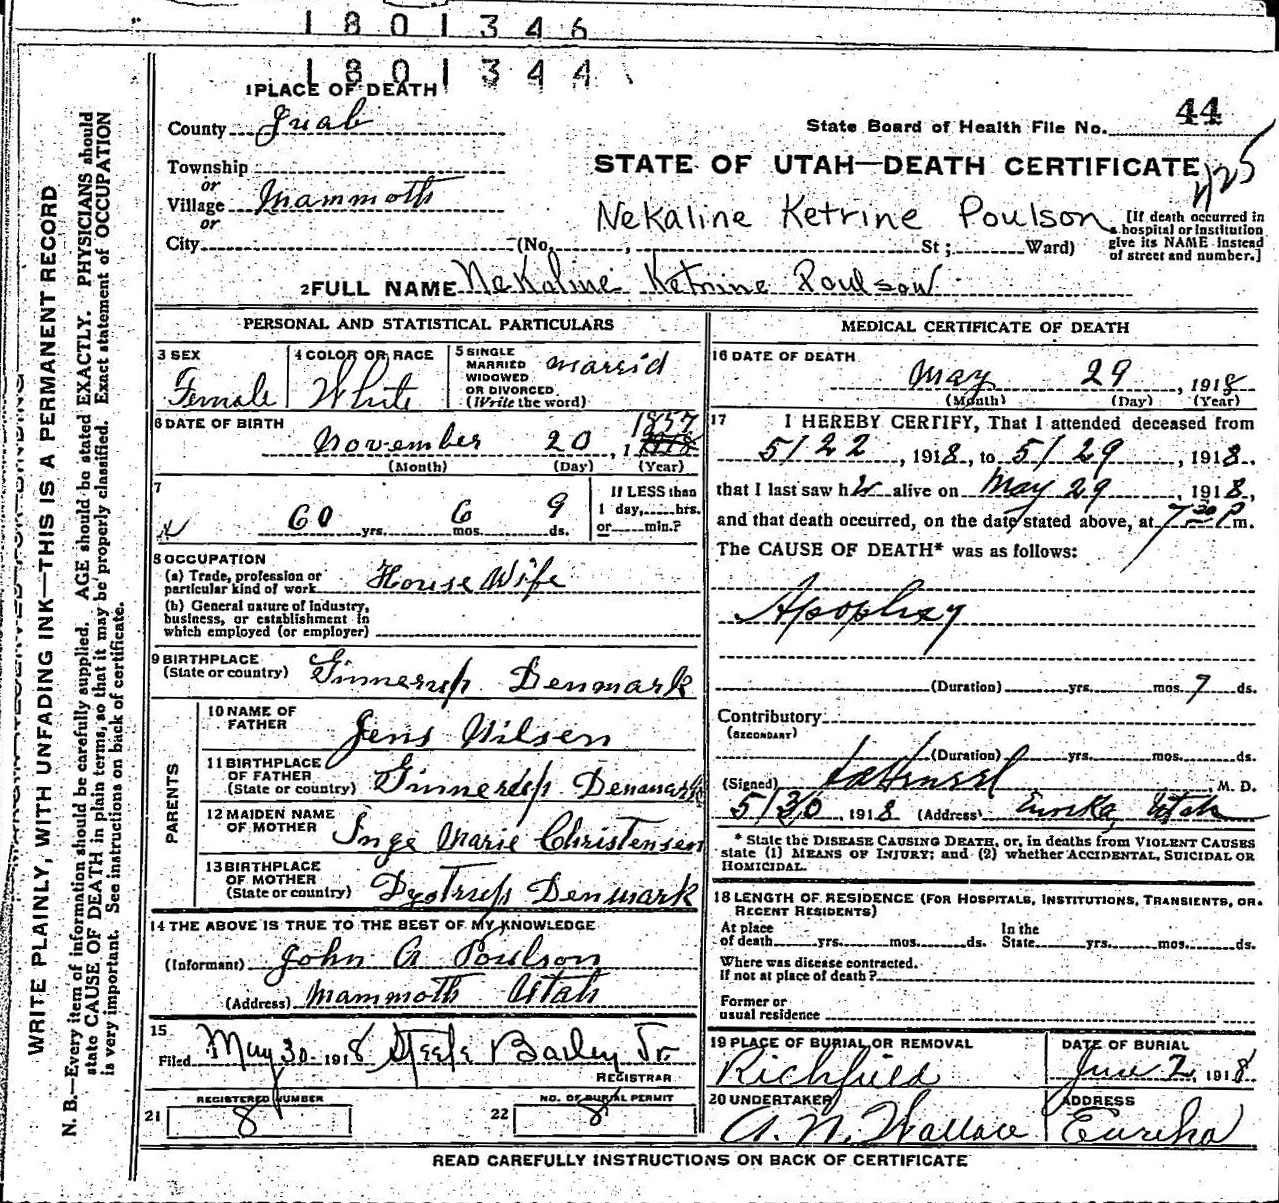 1801346
1801344
1 PLACE OF DEATH
County Juab
State Board of Health File No. 44
Township
or
Village Mammoth
or
City (No. , St; Ward)
STATE OF UTAH—DEATH CERTIFICATE
425
Nekaline Ketrine Poulson
[If death occurred in
a hospital or institution
give its NAME instead
of street and number.]
2 FULL NAME Nekaline Ketrine Poulson
PERSONAL AND STATISTICAL PARTICULARS
3 SEX
Female
4 COLOR OR RACE
White
5 SINGLE
MARRIED
WIDOWED
OR DIVORCED
(Write the word)
married
6 DATE OF BIRTH
November 20, 1857
(Month) (Day) (Year)
7
60 yrs. 6 mos. 9 ds.
If LESS than
1 day,.....hrs.
or.....min.?
8 OCCUPATION
(a) Trade, profession or
particular kind of work House Wife
(b) General nature of industry,
business, or establishment in
which employed (or employer)
9 BIRTHPLACE
(State or country) Ginnerup Denmark
PARENTS
10 NAME OF
FATHER Jens Nilsen
11 BIRTHPLACE
OF FATHER
(State or country) Ginnerup Denmark
12 MAIDEN NAME
OF MOTHER Inge Marie Christensen
13 BIRTHPLACE
OF MOTHER
(State or country) Denmark
14 THE ABOVE IS TRUE TO THE BEST OF MY KNOWLEDGE
(Informant) John A Poulson
(Address) Mammoth Utah
15
Filed May 30 1918 Steele Bailey Jr.
REGISTRAR
REGISTERED NUMBER
21 8
NO. OF BURIAL PERMIT
22 8
MEDICAL CERTIFICATE OF DEATH
16 DATE OF DEATH
May 29, 1918
(Month) (Day) (Year)
17 I HEREBY CERTIFY, That I attended deceased from
5/22, 1918, to 5/29, 1918.
that I last saw her alive on May 29, 1918,
and that death occurred, on the date stated above, at 7 30 P m.
The CAUSE OF DEATH* was as follows:
Apoplexy
(Duration) yrs. mos. 7 ds.
Contributory
(SECONDARY)
(Duration) yrs. mos. ds.
(Signed) M. D.
5/30 1918 (Address) Eureka, Utah
* State the DISEASE CAUSING DEATH, or, in deaths from VIOLENT CAUSES
state (1) MEANS OF INJURY; and (2) whether ACCIDENTAL, SUICIDAL OR
HOMICIDAL.
18 LENGTH OF RESIDENCE (FOR HOSPITALS, INSTITUTIONS, TRANSIENTS, OR
RECENT RESIDENTS)
At place
of death yrs. mos. ds.
In the
State yrs. mos. ds.
Where was disease contracted.
If not at place of death?
Former or
usual residence
19 PLACE OF BURIAL OR REMOVAL
Richfield
DATE OF BURIAL
June 2, 1918
20 UNDERTAKER
A. N. Wallace
ADDRESS
Eureka
READ CAREFULLY INSTRUCTIONS ON BACK OF CERTIFICATE
WRITE PLAINLY, WITH UNFADING INK—THIS IS A PERMANENT RECORD
N. B.—Every item of information should be carefully supplied. AGE should be stated EXACTLY. PHYSICIANS should
state CAUSE OF DEATH in plain terms, so that it may be properly classified. Exact statement of OCCUPATION
is very important. See instructions on back of certificate.